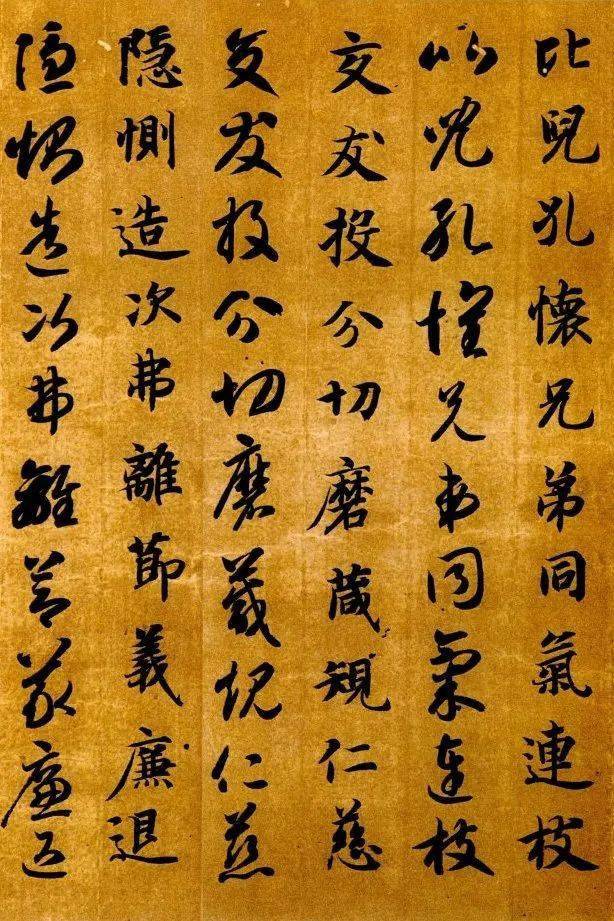 比兒孔懷兄弟同氣連枝
比兒孔懷兄弟同氣連枝
交友投分切磨葴規仁慈
交友投分切磨葴規仁慈
隱惻造次弗離節義廉退
隱惻造次弗離節義廉退